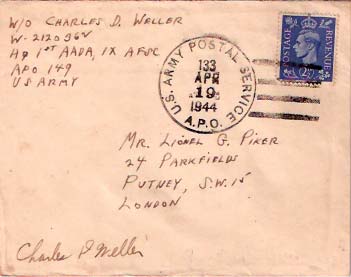 W/O CHARLES D. WELLER
W-2120964
Hq 1ST AADA, IX AFSC
APO 149
US ARMY
U.S. ARMY POSTAL SERVICE
133
APR
19
1944
A.P.O.
POSTAGE
REVENUE
2½
MR. LIONEL G. PIKER
24 PARKFIELDS
PUTNEY, S.W. 15
LONDON
Charles D Weller